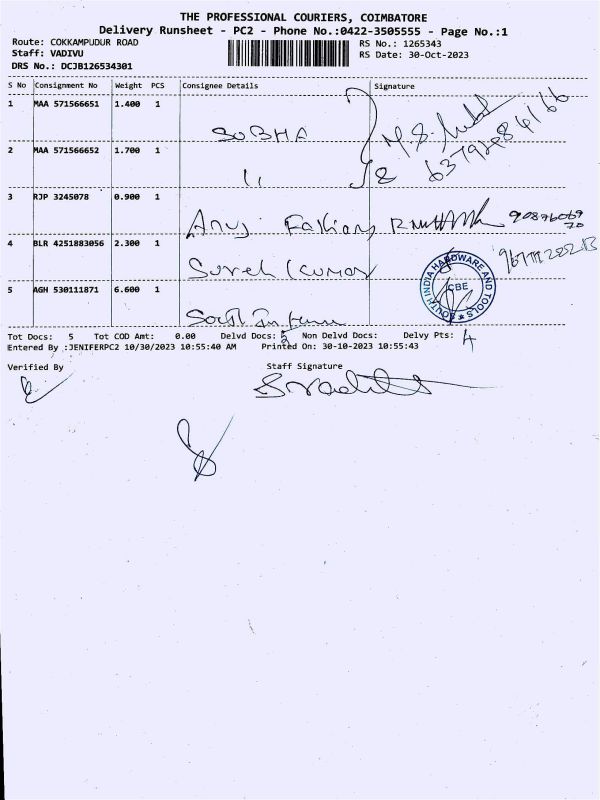 THE PROFESSIONAL COURIERS, COIMBATORE
Delivery Runsheet - PC2 - Phone No.:0422-3505555 - Page No.:1
Route: COKKAMPUDUR ROAD
RS No.: 1265343
Staff: VADIVU
RS Date: 30-Oct-2023
DRS No.: DCJB126534301
S No Consignment No Weight PCS Consignee Details Signature
1 MAA 571566651 1.400 1
SOBHA
2 MAA 571566652 1.700 1
11
3 RJP 3245078 0.900 1
Anuj Fashions
4 BLR 4251883056 2.300 1
Suresh Kumar
SOUTH INDIA HARDWARE AND TOOLS
CBE
5 AGH 530111871 6.600 1
South
Tot Docs: 5 Tot COD Amt: 0.00 Delvd Docs: 5 Non Delvd Docs: Delvy Pts: 4
Entered By :JENIFERPC2 10/30/2023 10:55:40 AM Printed On: 30-10-2023 10:55:43
Verified By
Staff Signature